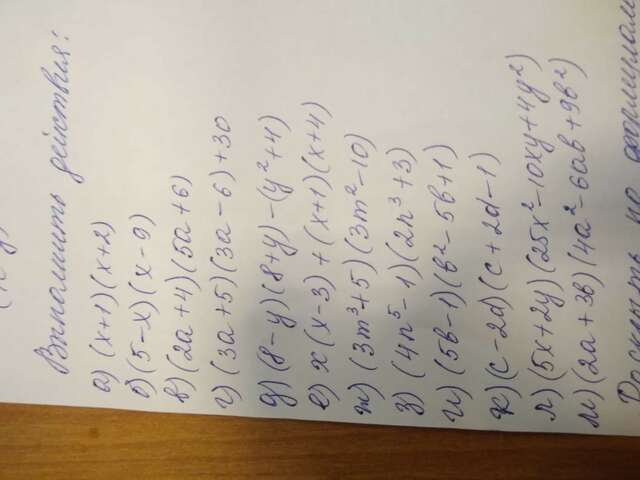 Выполнить действия:
а) (x+1)(x+2)
б) (5-x)(x-9)
в) (2a+4)(5a+6)
г) (3a+5)(3a-6)+30
д) (8-y)(8+y)-(y²+4)
е) x(x-3)+(x+1)(x+4)
ж) (3m³+5)(3m²-10)
з) (4n⁵-1)(2n³+3)
и) (5b-1)(b²-5b+1)
к) (c-2d)(c+2d-1)
л) (5x+2y)(25x²-10xy+4y²)
м) (2a+3b)(4a²-6ab+9b²)